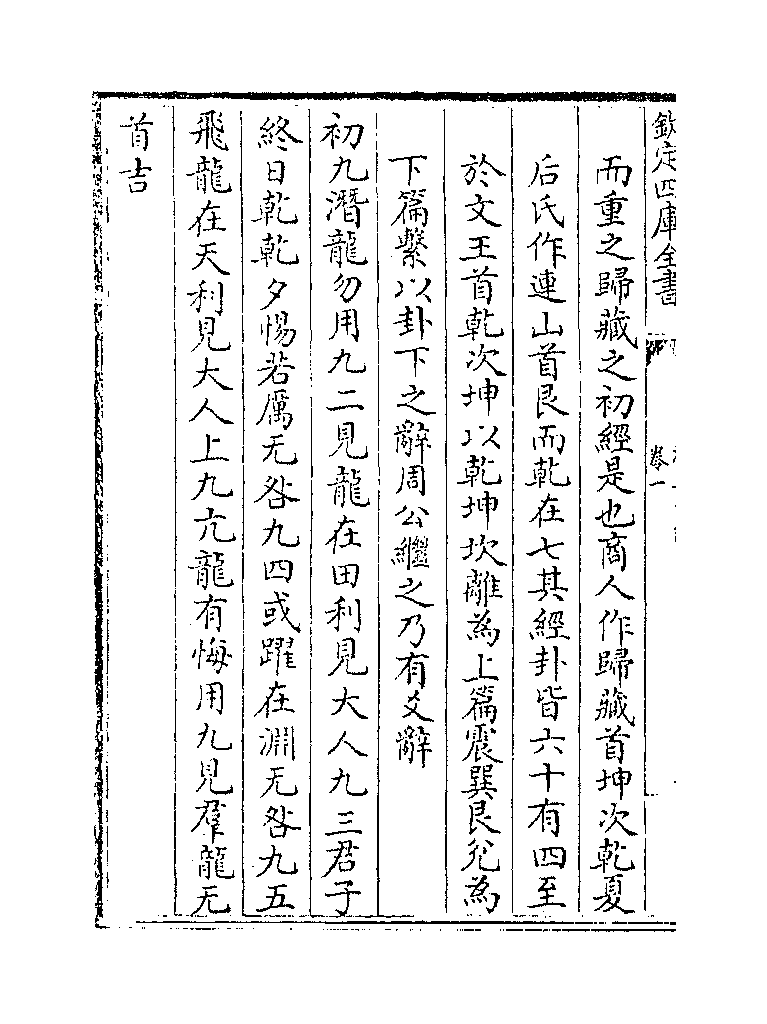 欽定四庫全書
卷一
而重之歸藏之初經是也商人作歸藏首坤次乾夏
后氏作連山首艮而乾在七其經卦皆六十有四至
於文王首乾次坤以乾坤坎離為上篇震巽艮兊為
下篇繫以卦下之辭周公繼之乃有爻辭
初九潛龍勿用九二見龍在田利見大人九三君子
終日乾乾夕惕若厲无咎九四或躍在淵无咎九五
飛龍在天利見大人上九亢龍有悔用九見羣龍无
首吉